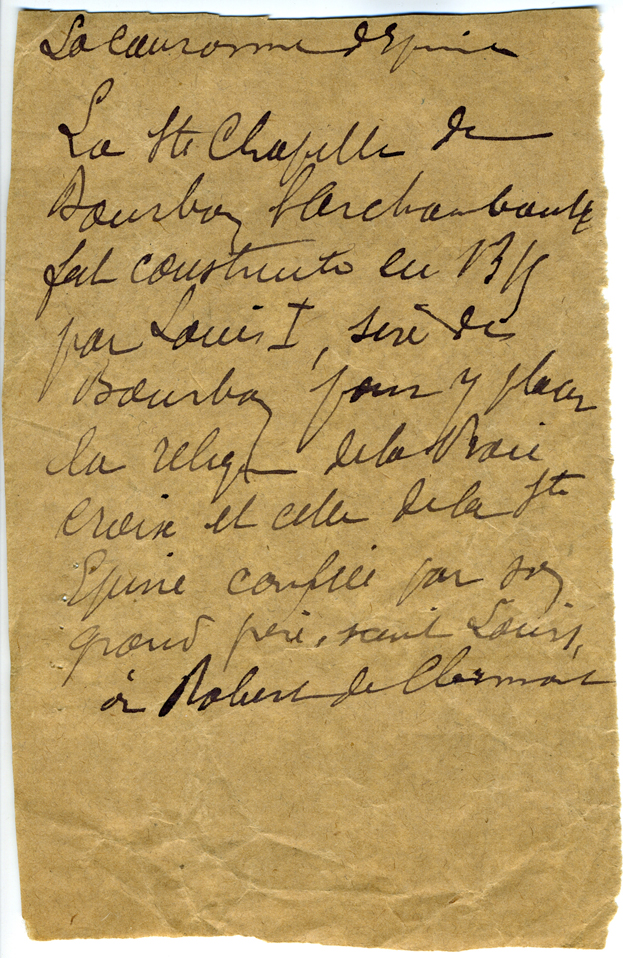 La Couronne d'Epine
La Ste Chapelle de
Bourbon l'Archambault
fut construite en 1315
par Louis I, sire de
Bourbon pour y placer
la relique de la Vraie
Croix et celle de la Ste
Epine confiée par son
grand père, saint Louis,
à Robert de Clermont